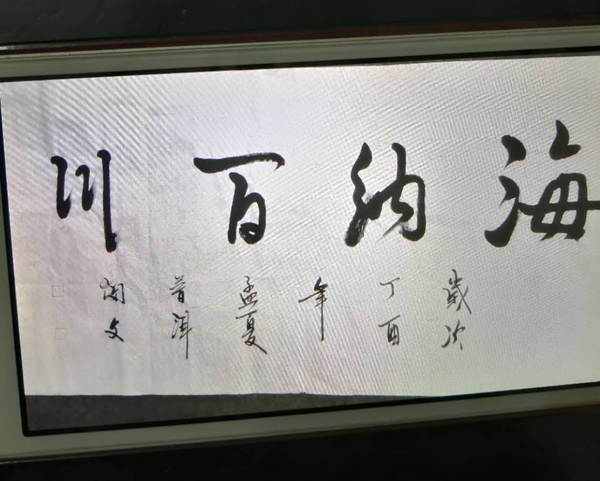 海纳百川
歲次丁酉年孟夏普洱闲文